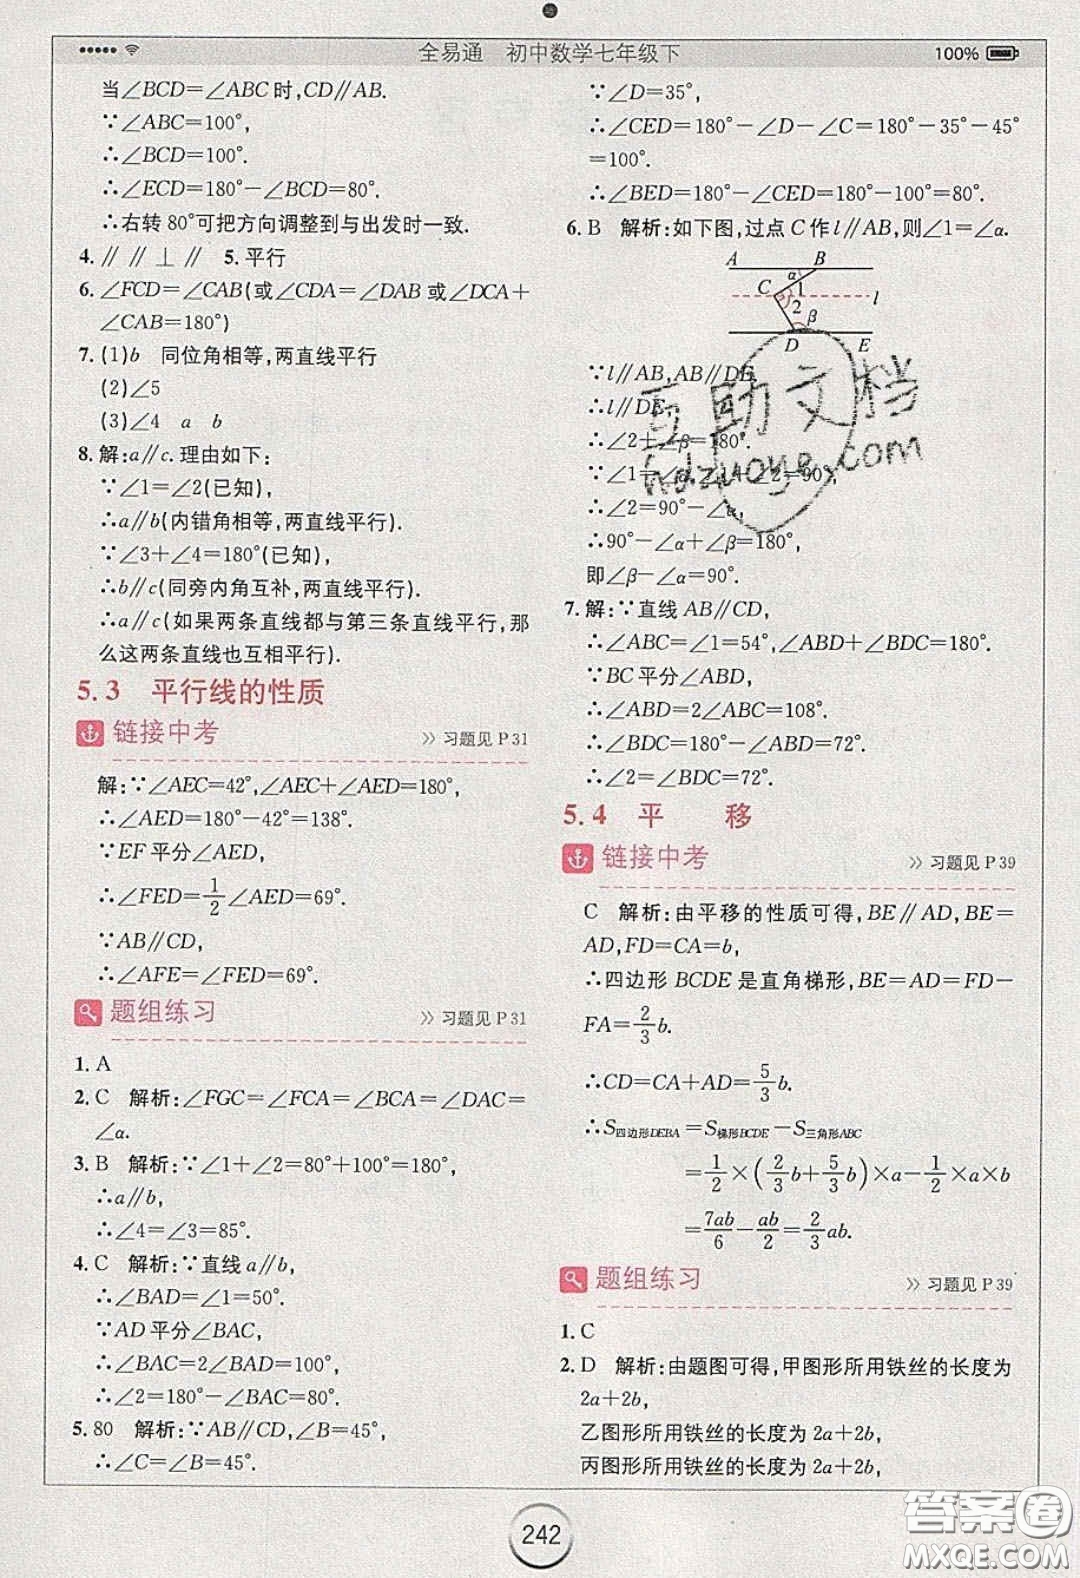 全易通 初中数学七年级下
100%
当∠BCD=∠ABC时,CD∥AB.
∵∠ABC=100°,
∴∠BCD=100°.
∴∠ECD=180°-∠BCD=80°.
∴右转80°可把方向调整到与出发时一致.
4.∥ ∥ ⊥ ∥ 5.平行
6.∠FCD=∠CAB(或∠CDA=∠DAB或∠DCA+
∠CAB=180°)
7.(1)b 同位角相等,两直线平行
(2)∠5
(3)∠4 a b
8.解:a∥c.理由如下:
∵∠1=∠2(已知),
∴a∥b(内错角相等,两直线平行).
∵∠3+∠4=180°(已知),
∴b∥c(同旁内角互补,两直线平行).
∴a∥c(如果两条直线都与第三条直线平行,那
么这两条直线也互相平行).
5.3 平行线的性质
链接中考 >>习题见P31
解:∵∠AEC=42°,∠AEC+∠AED=180°,
∴∠AED=180°-42°=138°.
∵EF平分∠AED,
∴∠FED=1/2∠AED=69°.
∵AB∥CD,
∴∠AFE=∠FED=69°.
题组练习 >>习题见P31
1.A
2.C 解析:∠FGC=∠FCA=∠BCA=∠DAC=
∠α.
3.B 解析:∵∠1+∠2=80°+100°=180°,
∴a∥b,
∴∠4=∠3=85°.
4.C 解析:∵直线a∥b,
∴∠BAD=∠1=50°.
∵AD平分∠BAC,
∴∠BAC=2∠BAD=100°,
∴∠2=180°-∠BAC=80°.
5.80 解析:∵AB∥CD,∠B=45°,
∴∠C=∠B=45°.
∵∠D=35°,
∴∠CED=180°-∠D-∠C=180°-35°-45°
=100°.
∴∠BED=180°-∠CED=180°-100°=80°.
6.B 解析:如下图,过点C作l∥AB,则∠1=∠α.
A B
α
C 1 l
2
β
D E
∵l∥AB,AB∥DE,
∴l∥DE,
∴∠2+∠β=180°.
∵∠1=∠α,∠1+∠2=90°,
∴∠2=90°-∠α,
∴90°-∠α+∠β=180°,
即∠β-∠α=90°.
7.解:∵直线AB∥CD,
∴∠ABC=∠1=54°,∠ABD+∠BDC=180°.
∵BC平分∠ABD,
∴∠ABD=2∠ABC=108°.
∴∠BDC=180°-∠ABD=72°.
∴∠2=∠BDC=72°.
5.4 平 移
链接中考 >>习题见P39
C 解析:由平移的性质可得,BE∥AD,BE=
AD,FD=CA=b,
∴四边形BCDE是直角梯形,BE=AD=FD-
FA=2/3b.
∴CD=CA+AD=5/3b.
∴S四边形DEBA=S梯形BCDE-S三角形ABC
=1/2×(2/3b+5/3b)×a-1/2×a×b
=7ab/6-ab/2=2/3ab.
题组练习 >>习题见P39
1.C
2.D 解析:由题图可得,甲图形所用铁丝的长度为
2a+2b,
乙图形所用铁丝的长度为2a+2b,
丙图形所用铁丝的长度为2a+2b,
242
互助文档
hdzuoye.com
答案圈
MXQE.COM